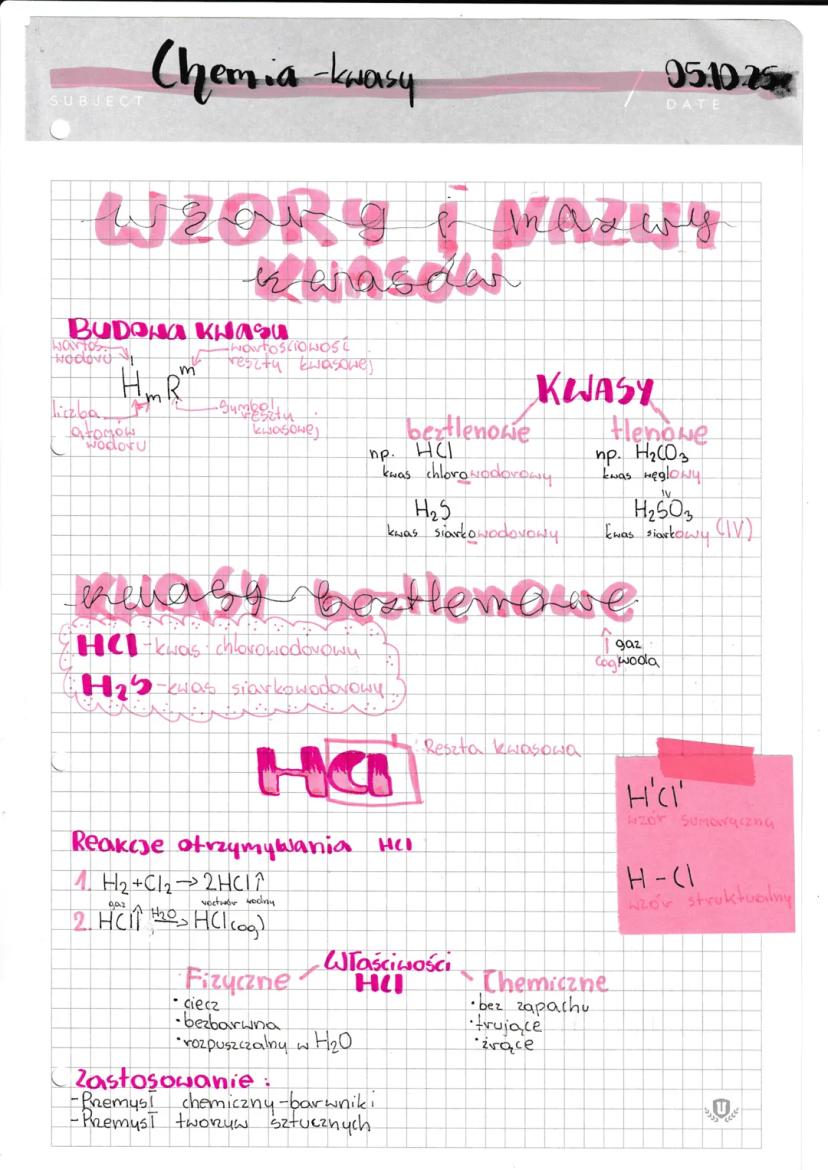 Chemia - kwasy 05.10.25
SUBJECT / DATE
WZORY i NAZWY
KWASÓW
BUDOWA KWASU
wartoś. wodoru
wartościowość reszty kwasowej
I m
HmR
liczba atomów wodoru
symbol reszty kwasowej
KWASY
beztlenowe tlenowe
np. HCl np. H₂CO₃
kwas chlorowodorowy kwas węglowy
IV
H₂S H₂SO₃
kwas siarkowodorowy kwas siarkowy (IV)
kwasy beztlenowe
HCl - kwas chlorowodorowy
H₂S - kwas siarkowodorowy
↑ gaz
(og woda
HCl
Reszta kwasowa
HᴵClᴵ
wzór sumaryczny
H - Cl
wzór strukturalny
Reakcje otrzymywania HCl
1. H₂ + Cl₂ → 2HCl↑
gaz roztwór wodny
2. HCl↑ H₂O→ HCl(og)
Właściwości
HCl
Fizyczne Chemiczne
• ciecz • bez zapachu
• bezbarwna • trujące
• rozpuszczalny w H₂O • żrące
Zastosowanie:
- Przemysł chemiczny - barwniki
- Przemysł tworzyw sztucznych
U